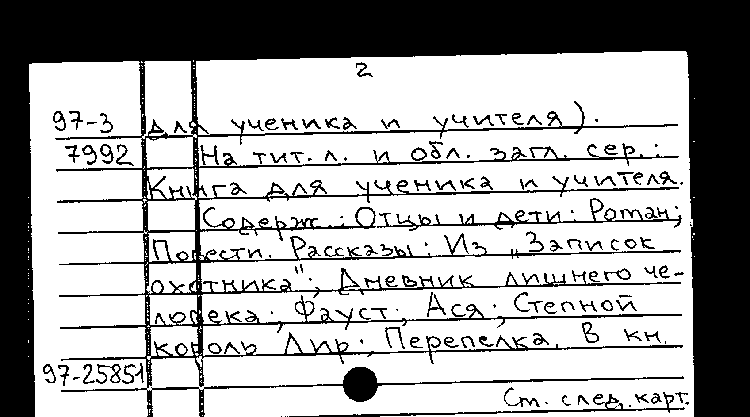 2
97-3 для ученика и учителя).
7992 На тит. л. и обл. загл. сер.:
Книга для ученика и учителя.
Содерж.: Отцы и дети: Роман;
Повести. Рассказы: Из „Записок
охотника"; Дневник лишнего че-
ловека; Фауст; Ася; Степной
король Лир; Перепелка. В кн.
97-25851
См. след. карт.